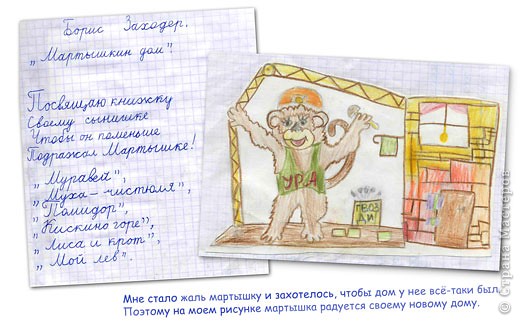 Борис Заходер.
„Мартышкин дом".
Посвящаю книжку
Своему сынишке
Чтобы он поменьше
Подражал Мартышке!
„Муравей",
„Муха – чистюля",
„Помидор",
„Кискино горе",
„Лиса и крот",
„Мой лев".
УРА
ГВОЗ
ДИ
Мне стало жаль мартышку и захотелось, чтобы дом у нее всё-таки был.
Поэтому на моем рисунке мартышка радуется своему новому дому.
© Страна Мастеров